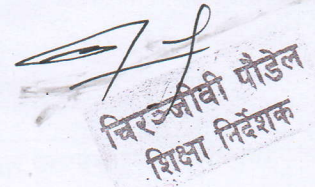 चिरञ्जीवी पौडेल
शिक्षा निर्देशक